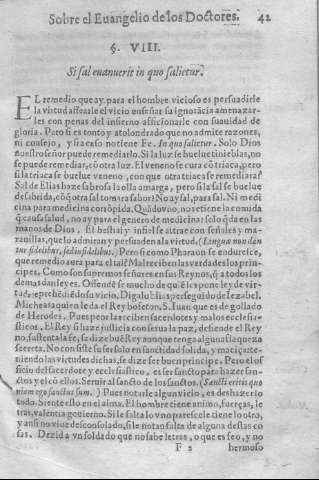 Sobre el Euangelio de los Doctores. 42
§. VIII.
Si sal euanuerit in quo salietur.
EL remedio que ay para el hombre vicioso es persuadirle
la virtud afearle el vicio enseñar su ignorãcia amenazar-
les con penas del infierno aficionarle con suauidad de
gloria. Pero si es tonto y atolondrado que no admite razones,
ni consejo, y si a caso no tiene Fe. In quo salietur. Solo Dios
nuestro señor puede remediarlo. Si la luz se buelue tinieblas, no
se puede remediar, cõ otra luz. El veneno se cura cõ triaca, pero
si la triaca se buelue veneno, con que otra triaca se remediara?
Sal de Elias haze sabrosa la olla amarga, pero si la sal se buelue
desabrida, cõ q̃ otra sal tomara sabor? No ay sal, para sal. Ni medi
cina para medicina corrõpida. Quãdo vio, no se tiene la comida
q̃ causa salud, no ay para el genero de medicina: solo q̃da en las
manos de Dios. El bestial y infiel se atrae con señales y ma-
rauillas, que lo admiran y persuaden a la virtud. (Lingua non dan
tur fidelibus, sed infidelibus.) Pero si como Pharaon se endurece,
que remedio aura para el tal? Mal reciben las verdades los prin-
cipes. Como son supremos señores en sus Reynos, q̃ a todos los
demas dan leyes. Offende se mucho de quiẽ les pone ley de vir-
tud: reprehẽdiẽdo su vicio. Digalo Elias perseguido de Iezabel,
Micheas a quien le da el Rey bofeton. S. Iuan que es degollado
de Herodes. Pues peor las reciben sacerdotes y malos ecclesia-
sticos. El Rey si haze justicia con sesua la paz, defiende el Rey
no, sustentala se, se dize buẽ Rey aunque tenga alguna flaqueza
secreta. No consiste su ser solo en sanctidad solida, y maciça: te-
niendo las virtudes dichas, se dize ser buen principe. Pero el of
ficio del sacerdote y ecclesiastico, es ser sancto para hazer san-
ctos y el cõ ellos. Seruir al sancto de los sanctos. (Sancti eritis quo
niam ego sanctus sum.) Pues notarle algun vicio, es deshazerlo
todo. Siente esto en el alma. El hombre tiene animo, fuerças, le
tras, valentia gouierno. Si le falta lo vno parescele tiene lo otro,
y ansi no viue desconsolado, si le notan falta de alguna destas co
sas. Dezid a vn soldado que no sabe letras, o que es feo, y no
F 2 hermoso